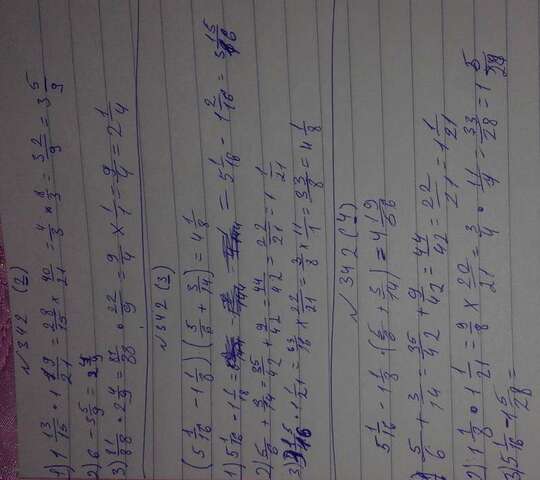 №342 (2)
1) 1 13/15 · 1 19/21 = 28/15 × 40/21 = 4/3 × 8/3 = 32/9 = 3 5/9
2) 6 - 3 5/9 = 2 4/9
3) 81/88 · 2 4/9 = 81/88 · 22/9 = 9/4 × 1/1 = 9/4 = 2 1/4
№342 (3)
(5 1/16 - 1 1/8) (5/6 + 3/14) = 4 1/8
1) 5 1/16 - 1 1/18 = = 5 1/16 - 1 2/16 = 3 15/16
2) 5/6 + 3/14 = 35/42 + 9/42 = 44/42 = 22/21 = 1 1/21
3) 3 15/16 · 1 1/21 = 63/16 × 22/21 = 3/8 × 11/1 = 33/8 = 4 1/8
№342 (4)
5 1/16 - 1 1/8 · (5/6 + 3/14) = 4 19/56
1) 5/6 + 3/14 = 35/42 + 9/42 = 44/42 = 22/21 = 1 1/21
2) 1 1/8 · 1 1/21 = 9/8 × 20/21 = 3/4 · 11/7 = 33/28 = 1 5/28
3) 5 1/16 - 1 5/28 =